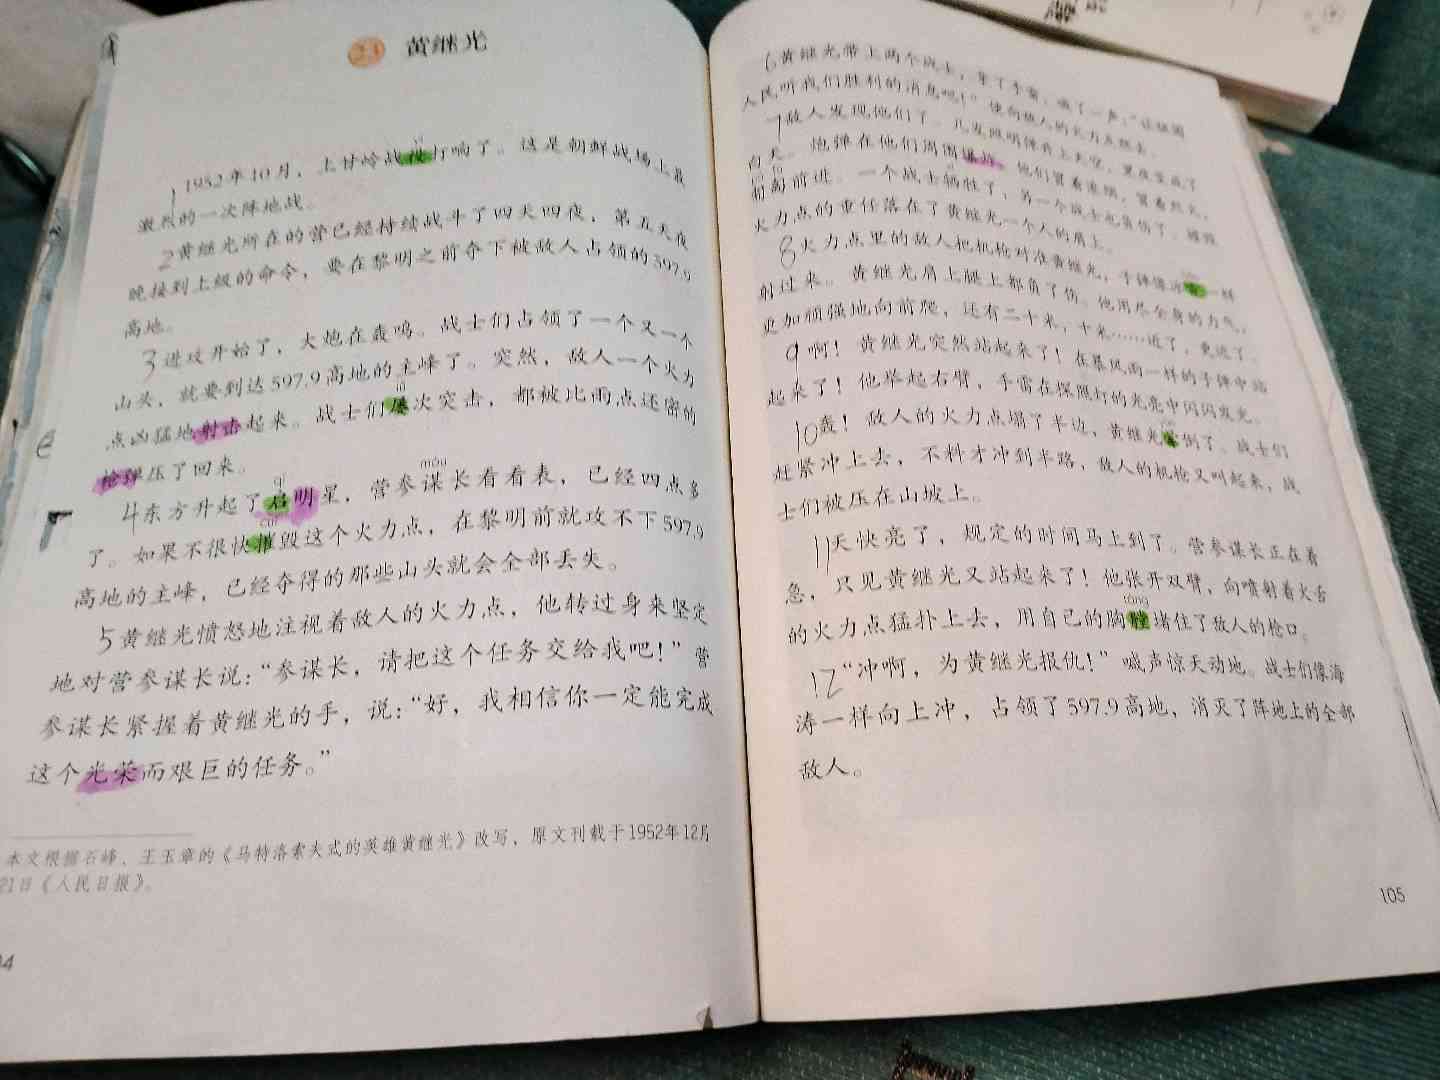 23 黄继光
1 1952年10月，上甘岭战役打响了。这是朝鲜战场上最
激烈的一次阵地战。
2 黄继光所在的营已经持续战斗了四天四夜，第五天夜
晚接到上级的命令，要在黎明之前夺下被敌人占领的597.9
高地。
3 进攻开始了，大炮在轰鸣。战士们占领了一个又一个
山头，就要到达597.9高地的主峰了。突然，敌人一个火力
点凶猛地射击起来。战士们屡次突击，都被比雨点还密的
枪弹压了回来。
qǐ
móu
4 东方升起了启明星，营参谋长看看表，已经四点多
cuī
了。如果不很快摧毁这个火力点，在黎明前就攻不下597.9
高地的主峰，已经夺得的那些山头就会全部丢失。
5 黄继光愤怒地注视着敌人的火力点，他转过身来坚定
地对营参谋长说：“参谋长，请把这个任务交给我吧！”营
参谋长紧握着黄继光的手，说：“好，我相信你一定能完成
这个光荣而艰巨的任务。”
本文根据石峰、王玉章的《马特洛索夫式的英雄黄继光》改写，原文刊载于1952年12月
21日《人民日报》。
04
6 黄继光带上两个战士，拿了手雷，喊了一声：“让祖国
人民听我们胜利的消息吧！”便向敌人的火力点爬去。
7 敌人发现他们了。几发照明弹升上天空，黑夜变成了
白天。炮弹在他们周围爆炸。他们冒着浓烟，冒着烈火，
匍匐前进。一个战士牺牲了，另一个战士也负伤了。摧毁
火力点的重任落在了黄继光一个人的肩上。
8 火力点里的敌人把机枪对准黄继光，子弹像冰雹一样
射过来。黄继光肩上腿上都负了伤。他用尽全身的力气，
更加顽强地向前爬，还有二十米，十米……近了，更近了。
9 啊！黄继光突然站起来了！在暴风雨一样的子弹中站
起来了！他举起右臂，手雷在探照灯的光亮中闪闪发光。
10 轰！敌人的火力点塌了半边，黄继光晕倒了。战士们
赶紧冲上去，不料才冲到半路，敌人的机枪又叫起来，战
士们被压在山坡上。
11 天快亮了，规定的时间马上到了。营参谋长正在着
急，只见黄继光又站起来了！他张开双臂，向喷射着火舌
táng
的火力点猛扑上去，用自己的胸膛堵住了敌人的枪口。
12 “冲啊，为黄继光报仇！”喊声惊天动地。战士们像海
涛一样向上冲，占领了597.9高地，消灭了阵地上的全部
敌人。
105